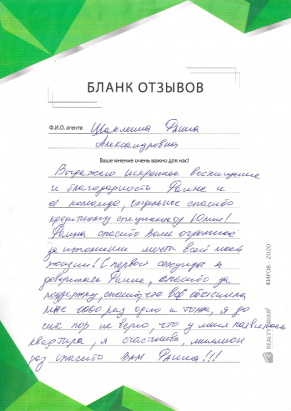 БЛАНК ОТЗЫВОВ
Ф.И.О. агента Шаклеина Фаина
Александровна
Ваше мнение очень важно для нас!
Выражаю искреннее восхищение
и благодарность Фаине и
её команде, отдельное спасибо
кредитному специалисту Юлии!
Фаина спасибо Вам огромное
за исполнение мечты всей моей
жизни! С первой секунды я
доверилась Фаине, спасибо за
поддержку, спасибо что всё объясняла
мне 1000 раз одно и тоже, я до
сих пор не верю, что у меня появилась
квартира, я счастлива, миллион
раз спасибо Вам Фаина!!!
REALTY GROUP КИРОВ - 2020